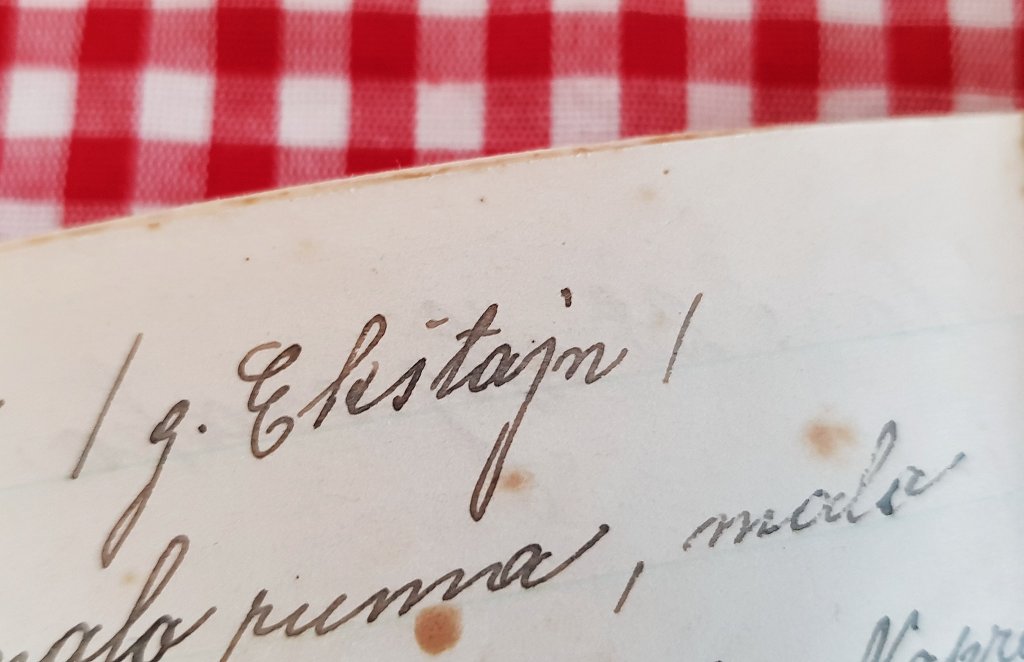 / g. Ekštajn /
malo ruma, malo
Napre